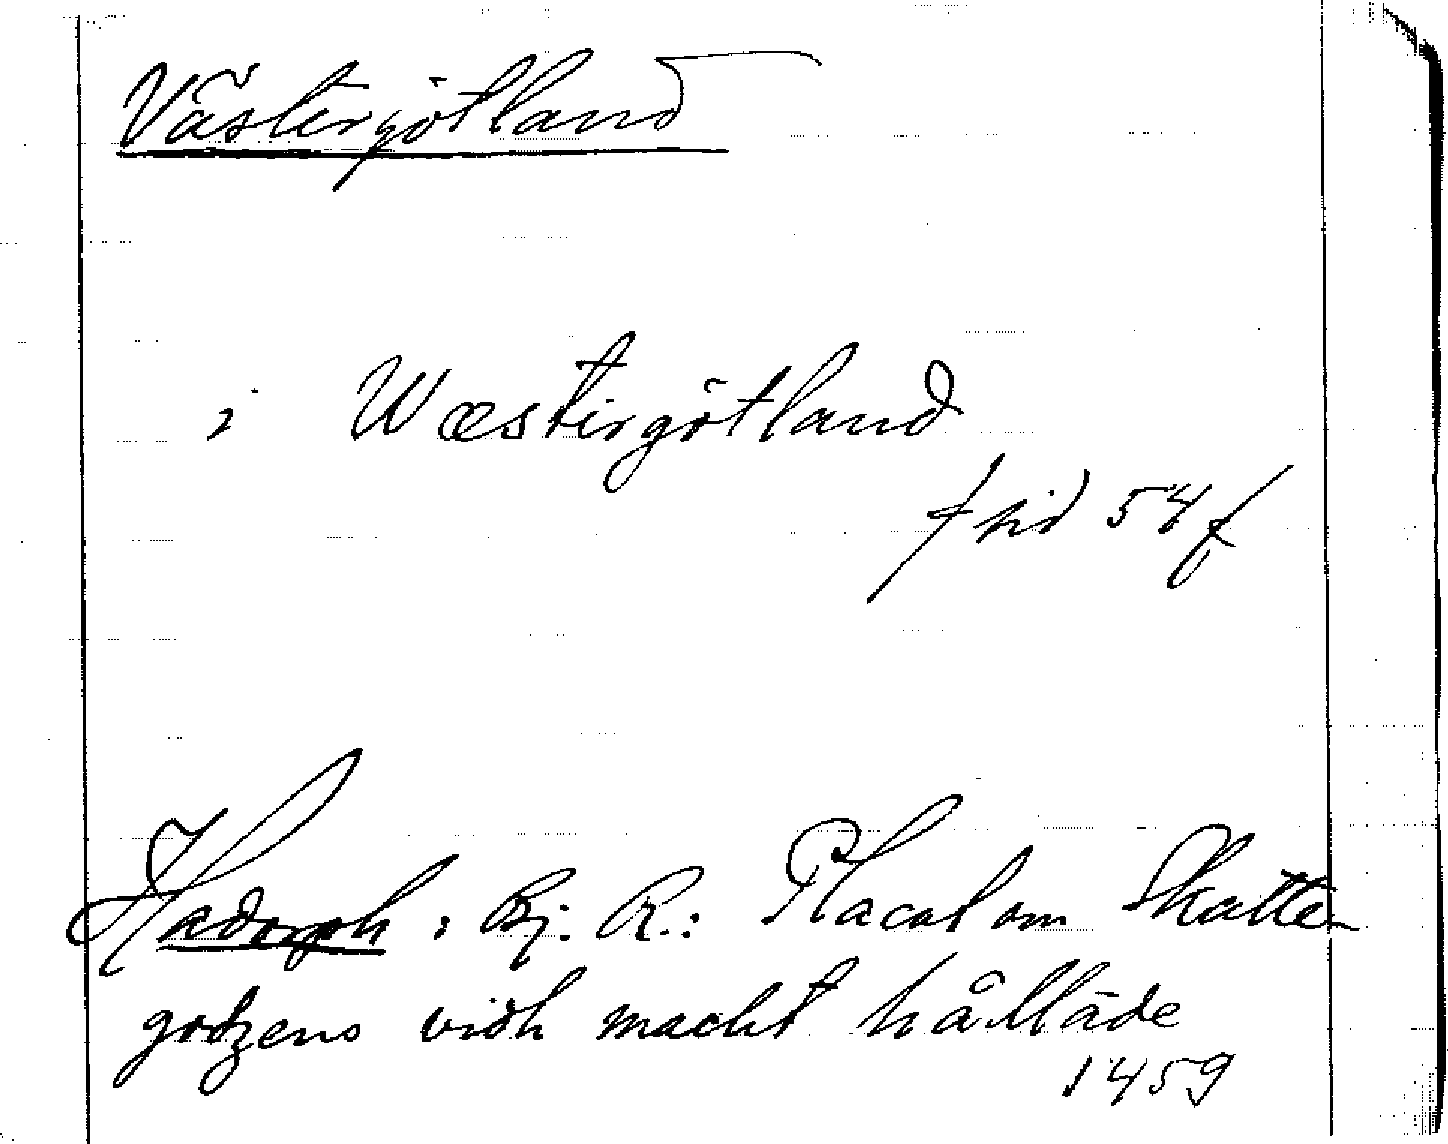 Västergötland
i Wæstergötland
/ sid 54 f
Hadorph: Bj. R.: Placat om Skatte
godzens vidh macht hållāde
1459